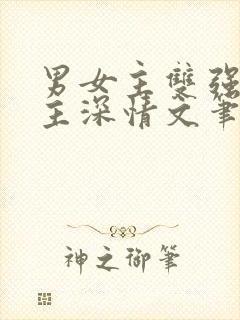 男女主雙强
主深情文筆
神之御筆